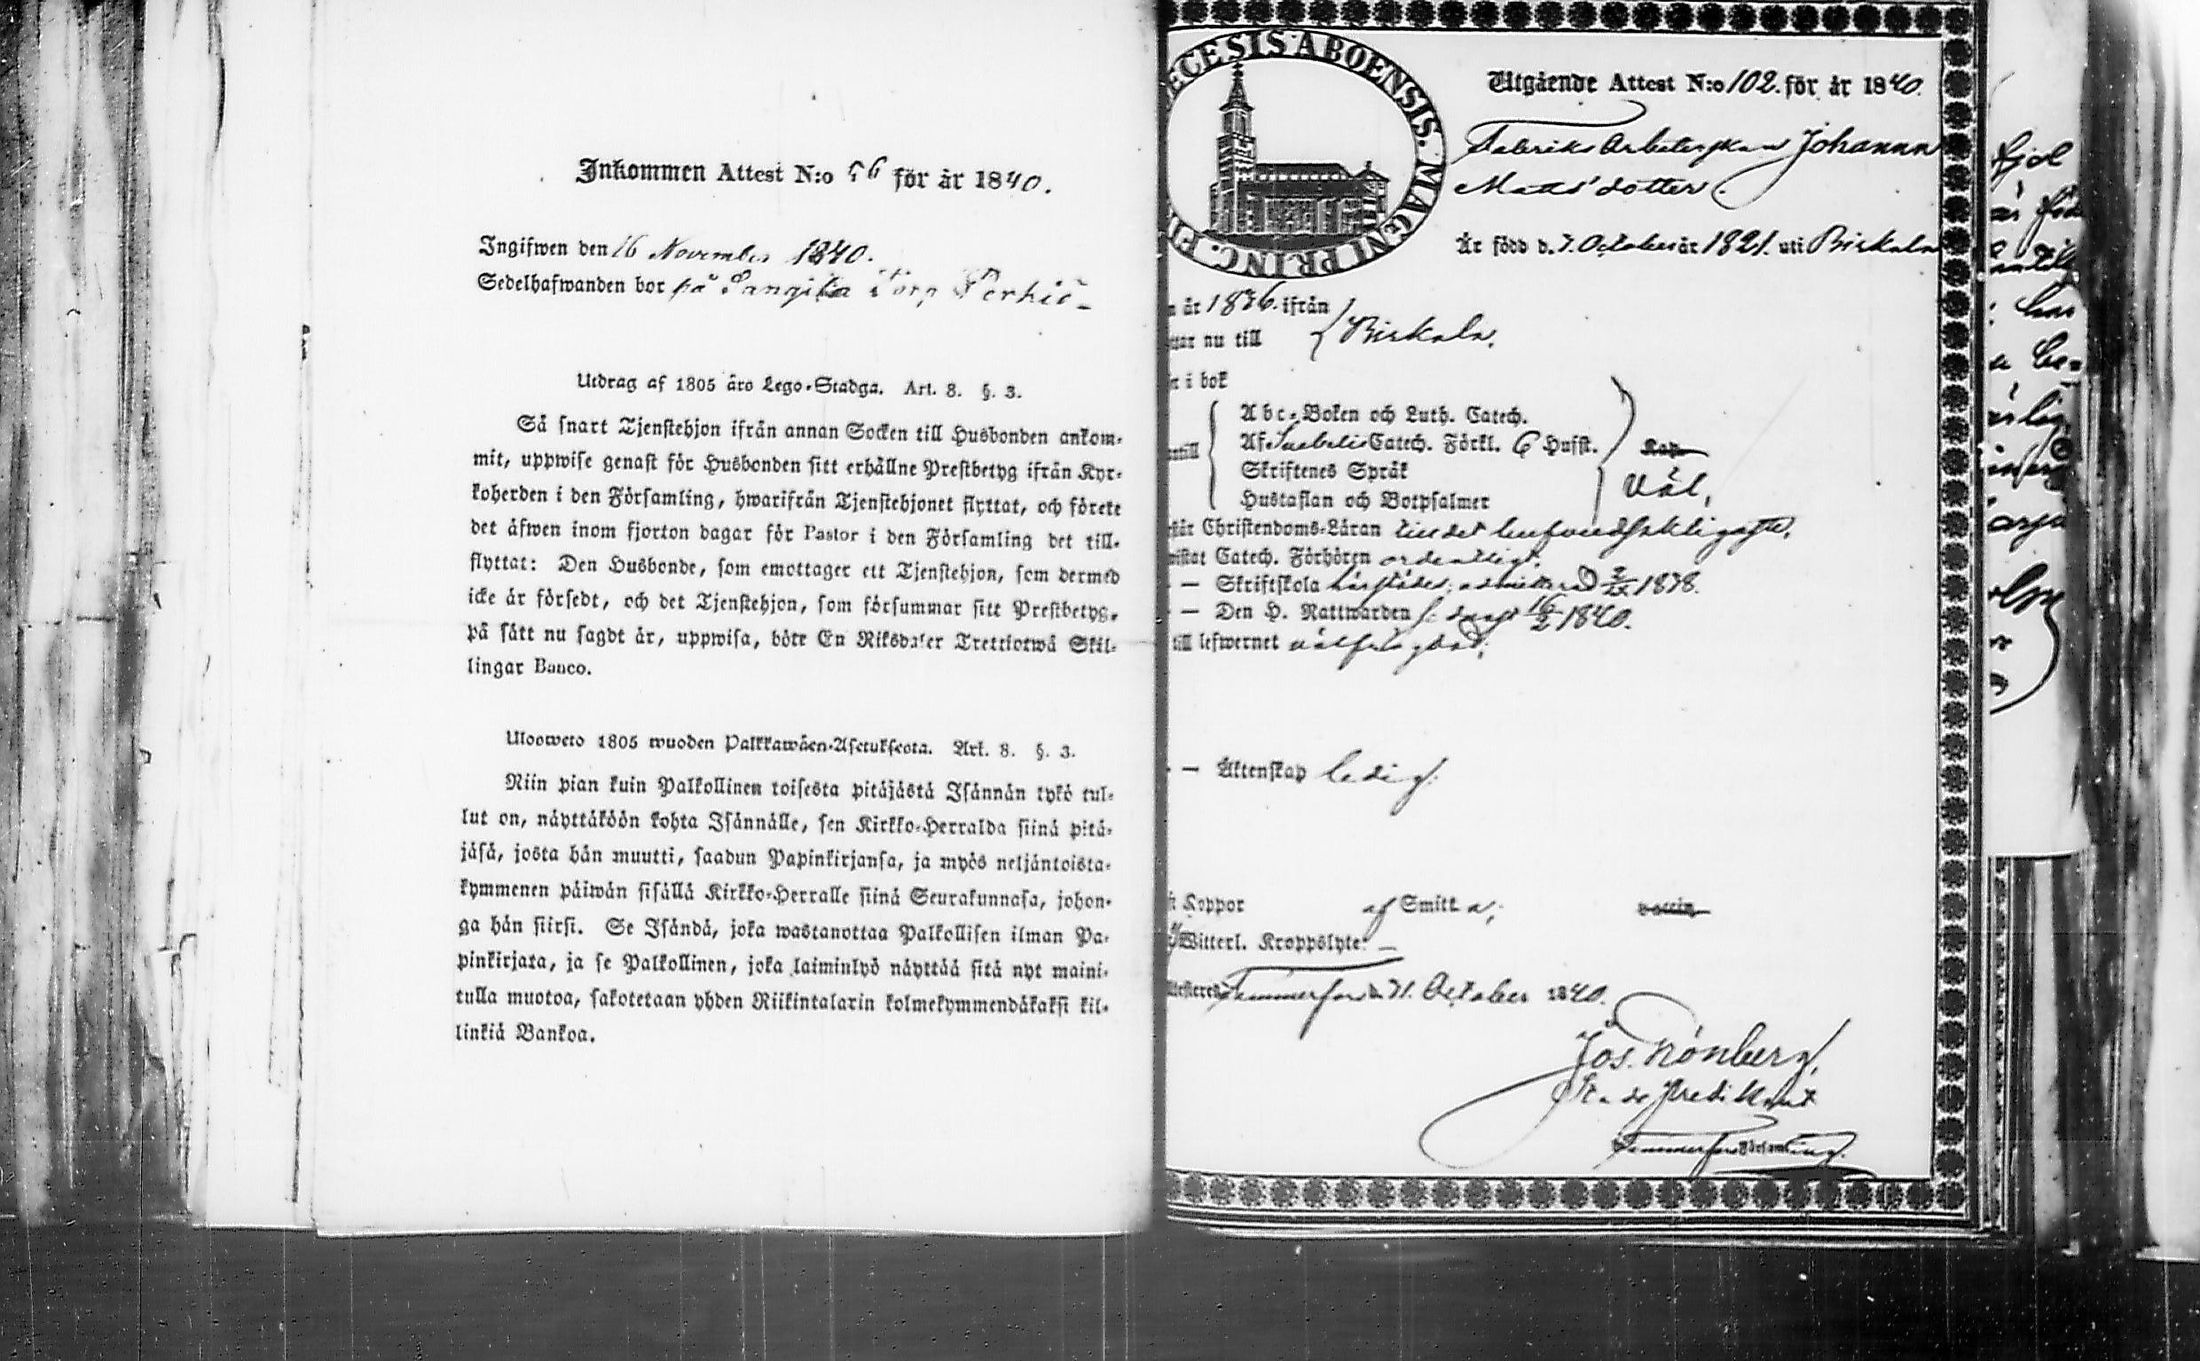 Inkommen Attest N:o 56 för år 1840.
Ingifwen den 16 November 1840.
Sedelhafwanden bor på torp Perkiö
Utdrag af 1805 års Lego-Stadga. Art. 8. §. 3.
Så snart Tjenstehjon ifrån annan Socken till Husbonden ankom-
mit, uppwise genast för Husbonden sitt erhållne Prestbetyg ifrån Kyr-
koherden i den Församling, hwarifrån Tjenstehjonet flyttat, och förete
det äfwen inom fjorton dagar för Pastor i den Församling det till-
flyttat: Den Husbonde, som emottager ett Tjenstehjon, som dermed
icke är försedt, och det Tjenstehjon, som försummar sitt Prestbetyg,
på sätt nu sagdt är, uppwisa, böte En Riksdaler Trettiotwå Skil-
lingar Banco.
Ulosweto 1805 wuoden Palkkawäen-Asetuksesta. Art. 8. §. 3.
Niin pian kuin Palkollinen toisesta pitäjästä Isännän tykö tul-
lut on, näyttäköön kohta Isännälle, sen Kirkko-Herralda siinä pitä-
jäsä, josta hän muutti, saadun Papinkirjansa, ja myös neljäntoista-
kymmenen päiwän sisällä Kirkko-Herralle siinä Seurakunnasa, johon-
ga hän siirsi. Se Isändä, joka wastanottaa Palkollisen ilman Pa-
pinkirjata, ja se Palkollinen, joka laiminlyö näyttää sitä nyt maini-
tulla muotoa, sakotetaan yhden Riikintalarin kolmekymmendäkaksi kil-
linkiä Bankoa.
ECESIS ABOENSIS. MAGNI PRINC. FI
Utgående Attest N:o 102. för år 1840.
Fabriks Arbeterskan Johanna
Matts dotter.
Är född d. 7. October år 1821. uti Birkala
år 1836. ifrån
nu till } Birkala.
i bok
Abc-Boken och Luth. Catech.
Af Svebelii Catech. Förkl. 6 Hufst.
Skriftenes Språk
Hustaflan och Botpsalmer
Väl,
Christendoms-Läran
Catech. Förhören ordentligt.
— Skriftskola härstädes, admitterad 1838.
— Den H. Nattwarden 1840.
till lefwernet välfrägdad;
— Äktenskap ledig.
Koppor af Smitta;
Witterl. Kroppslyte: —
Tammerfors d. 31. October 1840.
Jos. Grönberg,
Stads Predikant
Tammerfors Församling.